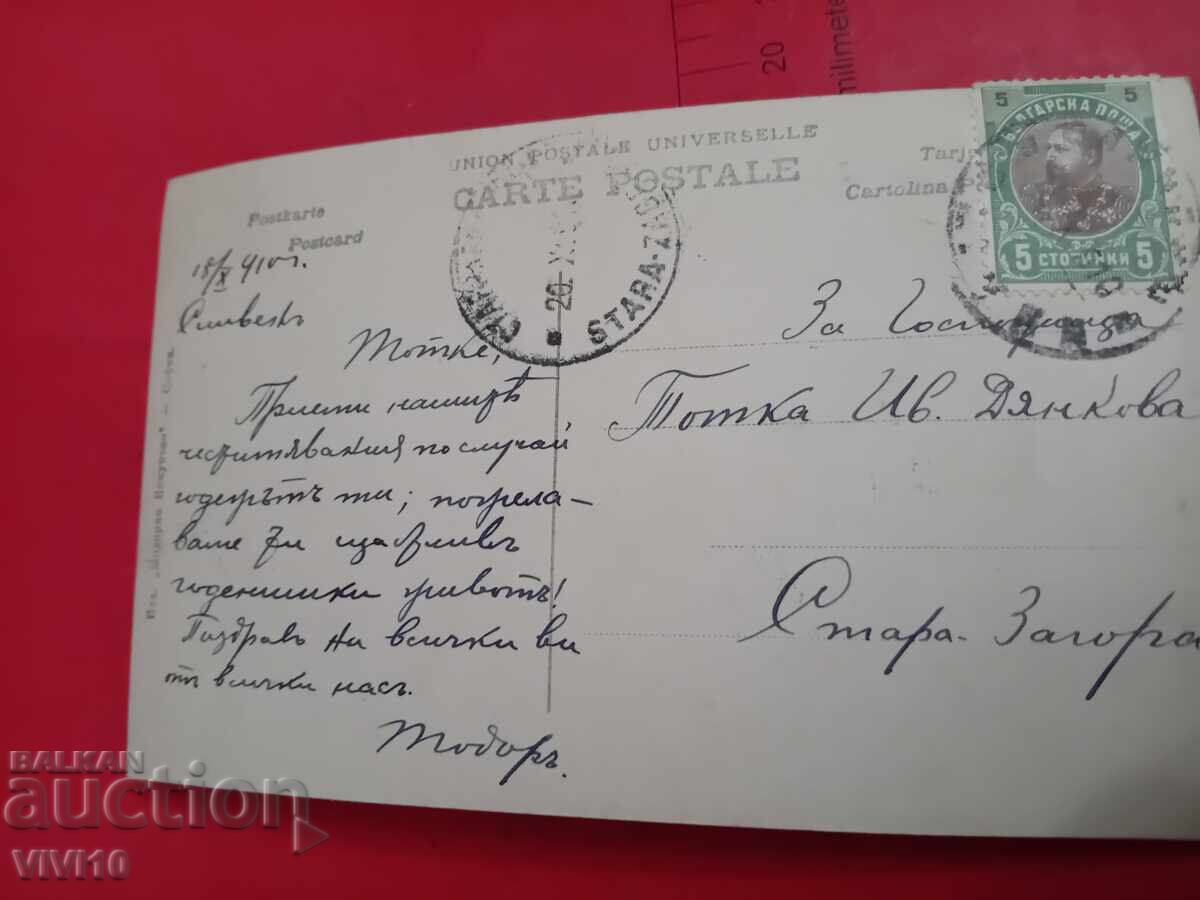 20
milimete
UNION POSTALE UNIVERSELLE
CARTE POSTALE
Postkarte
Postcard
Cartolina
5 5
БЪЛГАРСКА ПОЩА
5 СТОТИНКИ 5
20 X
STARA-ZAGORA
18/X 910 г.
Сливенъ
Тотке,
Приеми нашитѣ
честитявания по случай
годежътъ ти; пожела-
ваме ти щастливъ
годенишки животъ!
Поздравъ на всички ви
отъ всички насъ.
Тодоръ.
За Госпожица
Тотка Ив. Дянкова
Стара-Загора
BALKAN
auction
VIVI10